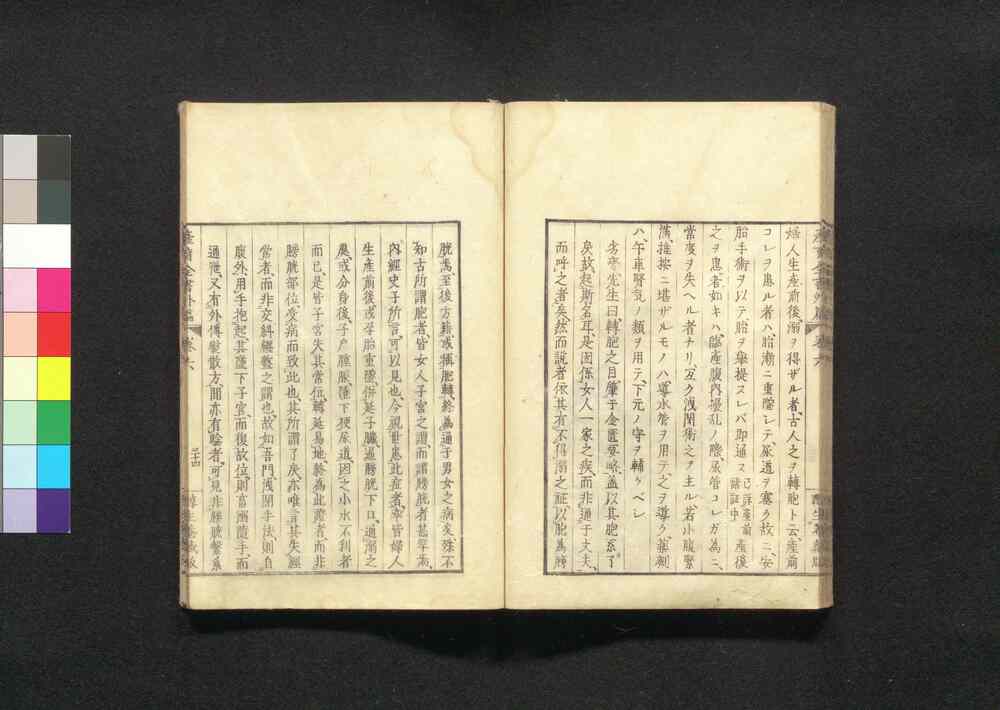 婦人生産前後、溺ヲ得ザル者、古人之ヲ轉胞ト云、産前
コレヲ患ル者ハ、胎漸ニ重墜シテ、尿道ヲ塞ク故ニ、安
胎手術ヲ以テ胎ヲ擧提スレバ即通ス 已詳産前 諸証中 産後
之ヲ患者如キハ、臨産腹內擾乱ノ際、尿管コレガ為ニ、
常度ヲ失ヘル者ナリ、宜ク洩閉術之ヲ主ル、若小腹緊
滿、推按ニ堪ザルモノハ、導水管ヲ用テ、之ヲ導ク、藥劑
ハ、牛車腎氣ノ類ヲ用テ、下元ノ守ヲ輔クベシ
先生曰、轉胞之目、肇于金匱要略、蓋以其胞系了
矣、故起斯名耳、是固係女人一家之疾、而非通于丈夫、
而呼之者矣、然而說者依其有不得溺之証、以胞為膀
胱焉、至後方籍或稱胞轉、終為通于男女之病矣、殊不
知古所謂胞者、皆女人子宮之謂、而謂膀胱者甚罕焉、
內經史子所言、可以見也、今視世患此症者、率皆婦人
生産前後、或孕胎重墜、併延子臟、逼膀胱下口、通溺之
戾、或分身後、子戶腫脹、墜下梗尿道、因之小水不利者
而已、是皆子宮失其常位、轉延易地、終為此證者、而非
膀胱部位受病而致此也、其所謂了戾、亦唯言其失經
常者、而非交糾纏繁之謂也、故如吾門洩閉手法、則自
腹外、用手抱起其墜下子宮、而復故位、則宮溺隨手、而
通泄、又有外傅散方、間亦有驗者、可見非膀胱繫系
産育全書外篇
卷六
二十四